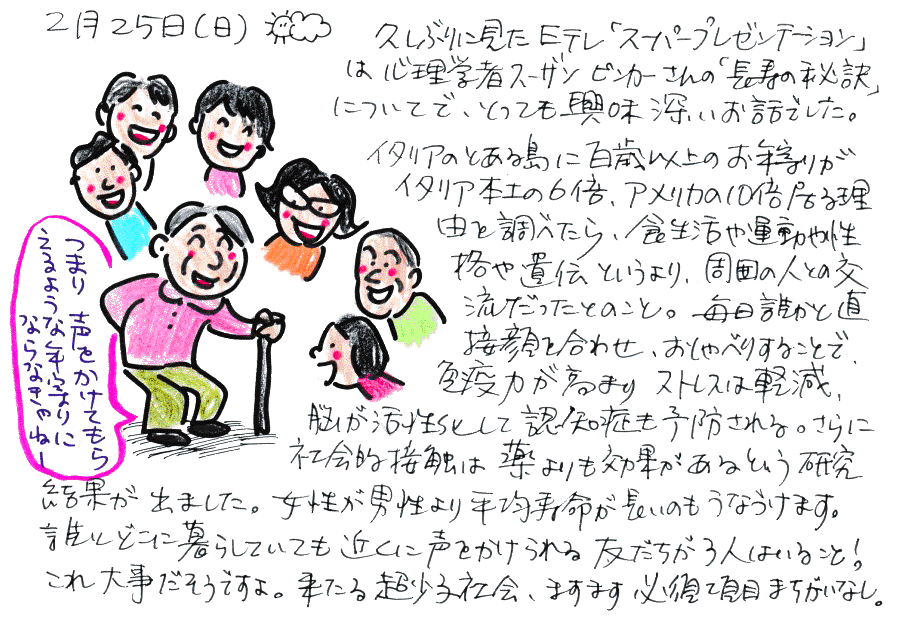 2月25日(日)
久しぶりに見たEテレ「スーパープレゼンテーション」
は心理学者スーザン ピンカーさんの「長寿の秘訣」
についてで、とっても興味深いお話でした。
イタリアのとある島に百歳以上のお年寄りが
イタリア本土の6倍、アメリカの10倍居る理
由を調べたら、食生活や運動や性
格や遺伝というより、周囲の人との交
流だったとのこと。毎日誰かと直
接顔を合わせ、おしゃべりすることで
免疫力が高まりストレスは軽減、
脳が活性化して認知症も予防される。さらに
社会的接触は薬よりも効果があるという研究
結果が出ました。女性が男性より平均寿命が長いのもうなづけます。
誰しどこに暮らしていても近くに声をかけられる友だちが3人はいること!
これ大事だそうですよ。来たる超少子社会、ますます必須項目まちがいなし。
つまり 声をかけてもら
えるような年寄りに
ならなきゃねー